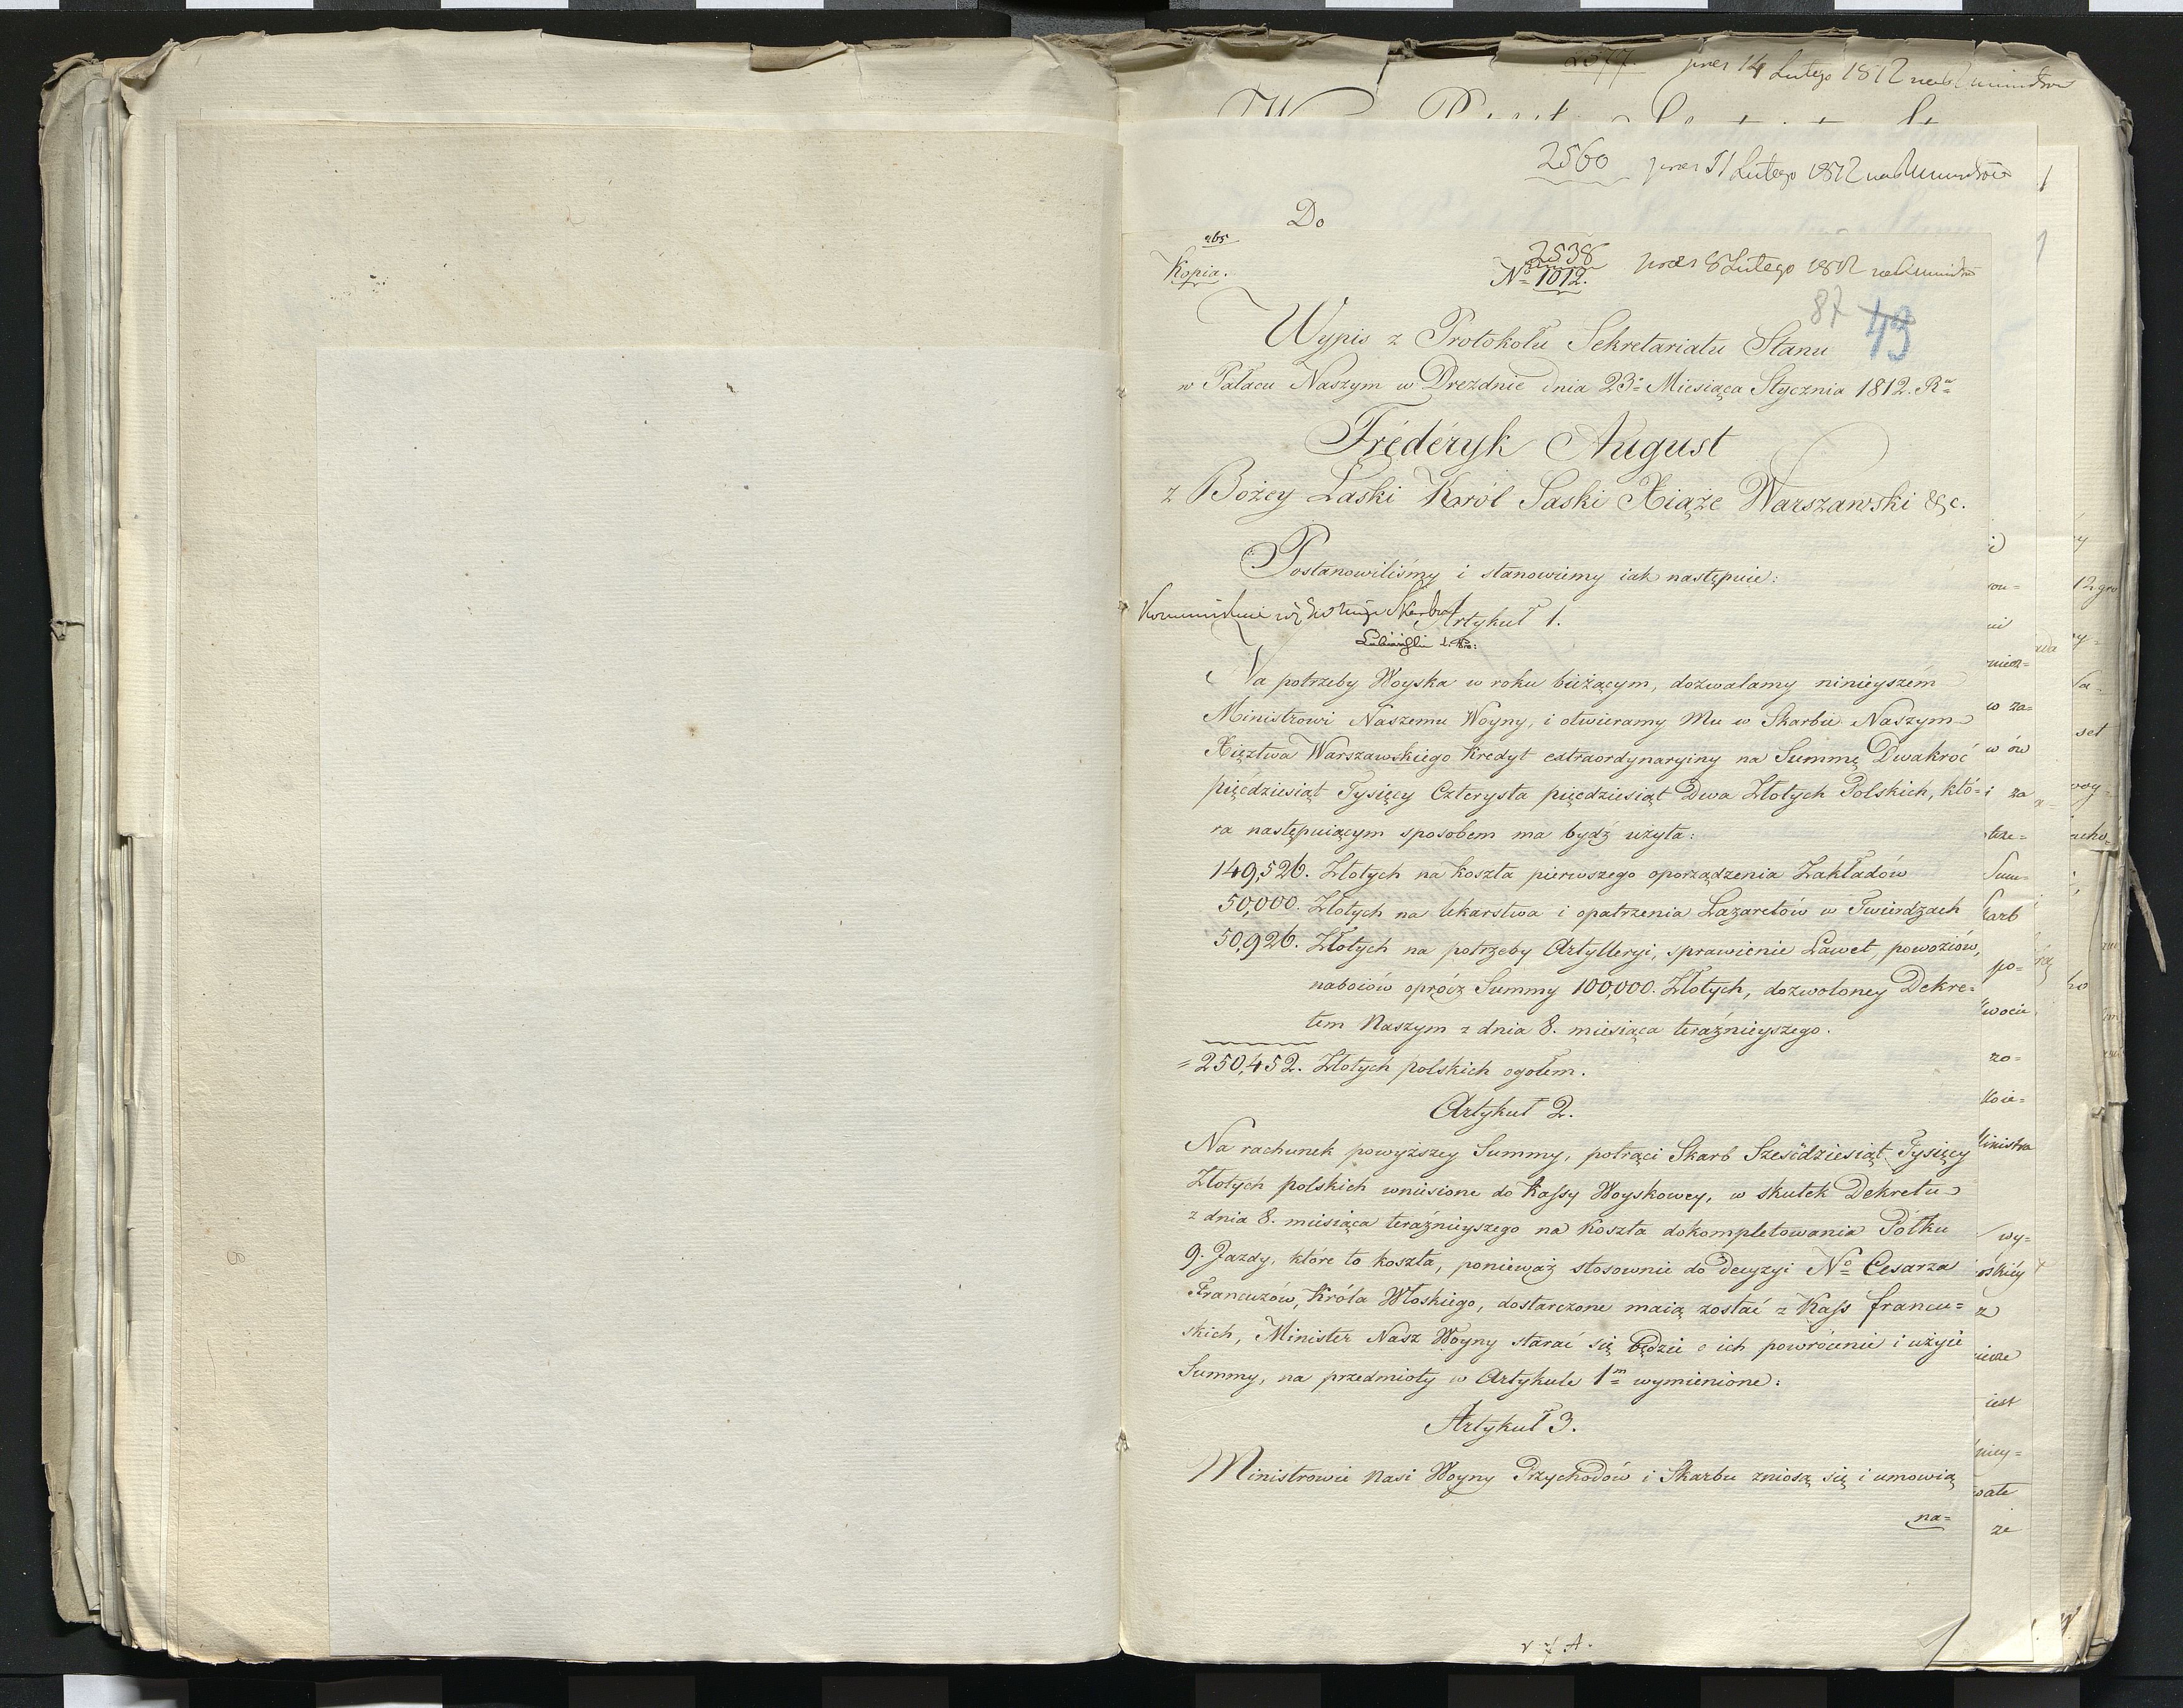 2577. 14 Lutego 1812
2560 11 Lutego 1812
Do
Kopia.
2538 8 Lutego 1812
No 1012.
87 43
Wypis z Protokołu Sekretariatu Stanu
w Pałacu Naszym w Dreznie dnia 23o Miesiąca Stycznia 1812. Ru
Fréderyk August
z Bożey Łaski Król Saski Xiąże Warszawski &c.
Postanowiliśmy i stanowiemy iak następuie:
Artykuł 1.
Na potrzeby Woyska w roku bieżącym, dozwalamy ninieyszém
Ministrowi Naszemu Woyny, i otwieramy Mu w Skarbie Naszym
Xięztwa Warszawskiego Kredyt extraordynaryiny na Summę Dwakroć
pięćdziesiąt Tysięcy Czterysta pięcdziesiąt Dwa Złotych Polskich, któ=
ra następuiącym sposobem ma bydź użyta:
149,526. Złotych na koszta pierwszego oporządzenia Zakładów
50,000. Złotych na lekarstwa i opatrzenia Lazaretów w Twierdzach
50,926. Złotych na potrzeby Artylleryi, sprawienie Lawet, powoziów,
naboiów opróćz Summy 100,000. Złotych, dozwoloney Dekre=
tem Naszym z dnia 8. miesiąca teraźnieyszego.
= 250,452. Złotych polskich ogołem.
Artykuł 2.
Na rachunek powyższey Summy, potrąci Skarb Sześćdziesiąt Tysięcy
Złotych polskich wniesione do Kassy Woyskowey, w skutek Dekretu
z dnia 8. miesiąca teraźnieyszego na koszta dokompletowania Półku
9. Jazdy, które to koszta, ponieważ stosownie do decyzyi No Cesarza
Francuzów, Króla Włoskiego, dostarczone maią zostać z Kass francu=
skich, Minister Nasz Woyny starać się będzie o ich powrócenie i użyie
Summy, na przedmioty w Artykule 1m wymienione:
Artykuł 3.
Ministrowie Nasi Woyny Przychodów i Skarbu zniosą się i umowią
na=